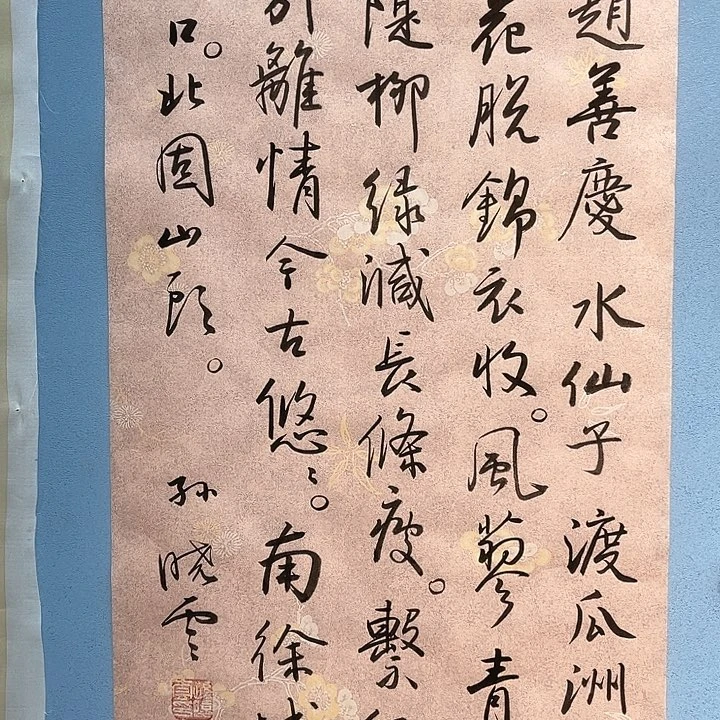 趙善慶 水仙子 渡瓜洲
花脱錦衣收。風蓼青
隄柳緑減長條瘦。繫
離情今古悠〻。南徐
口。北固山頭。
孙晓雲